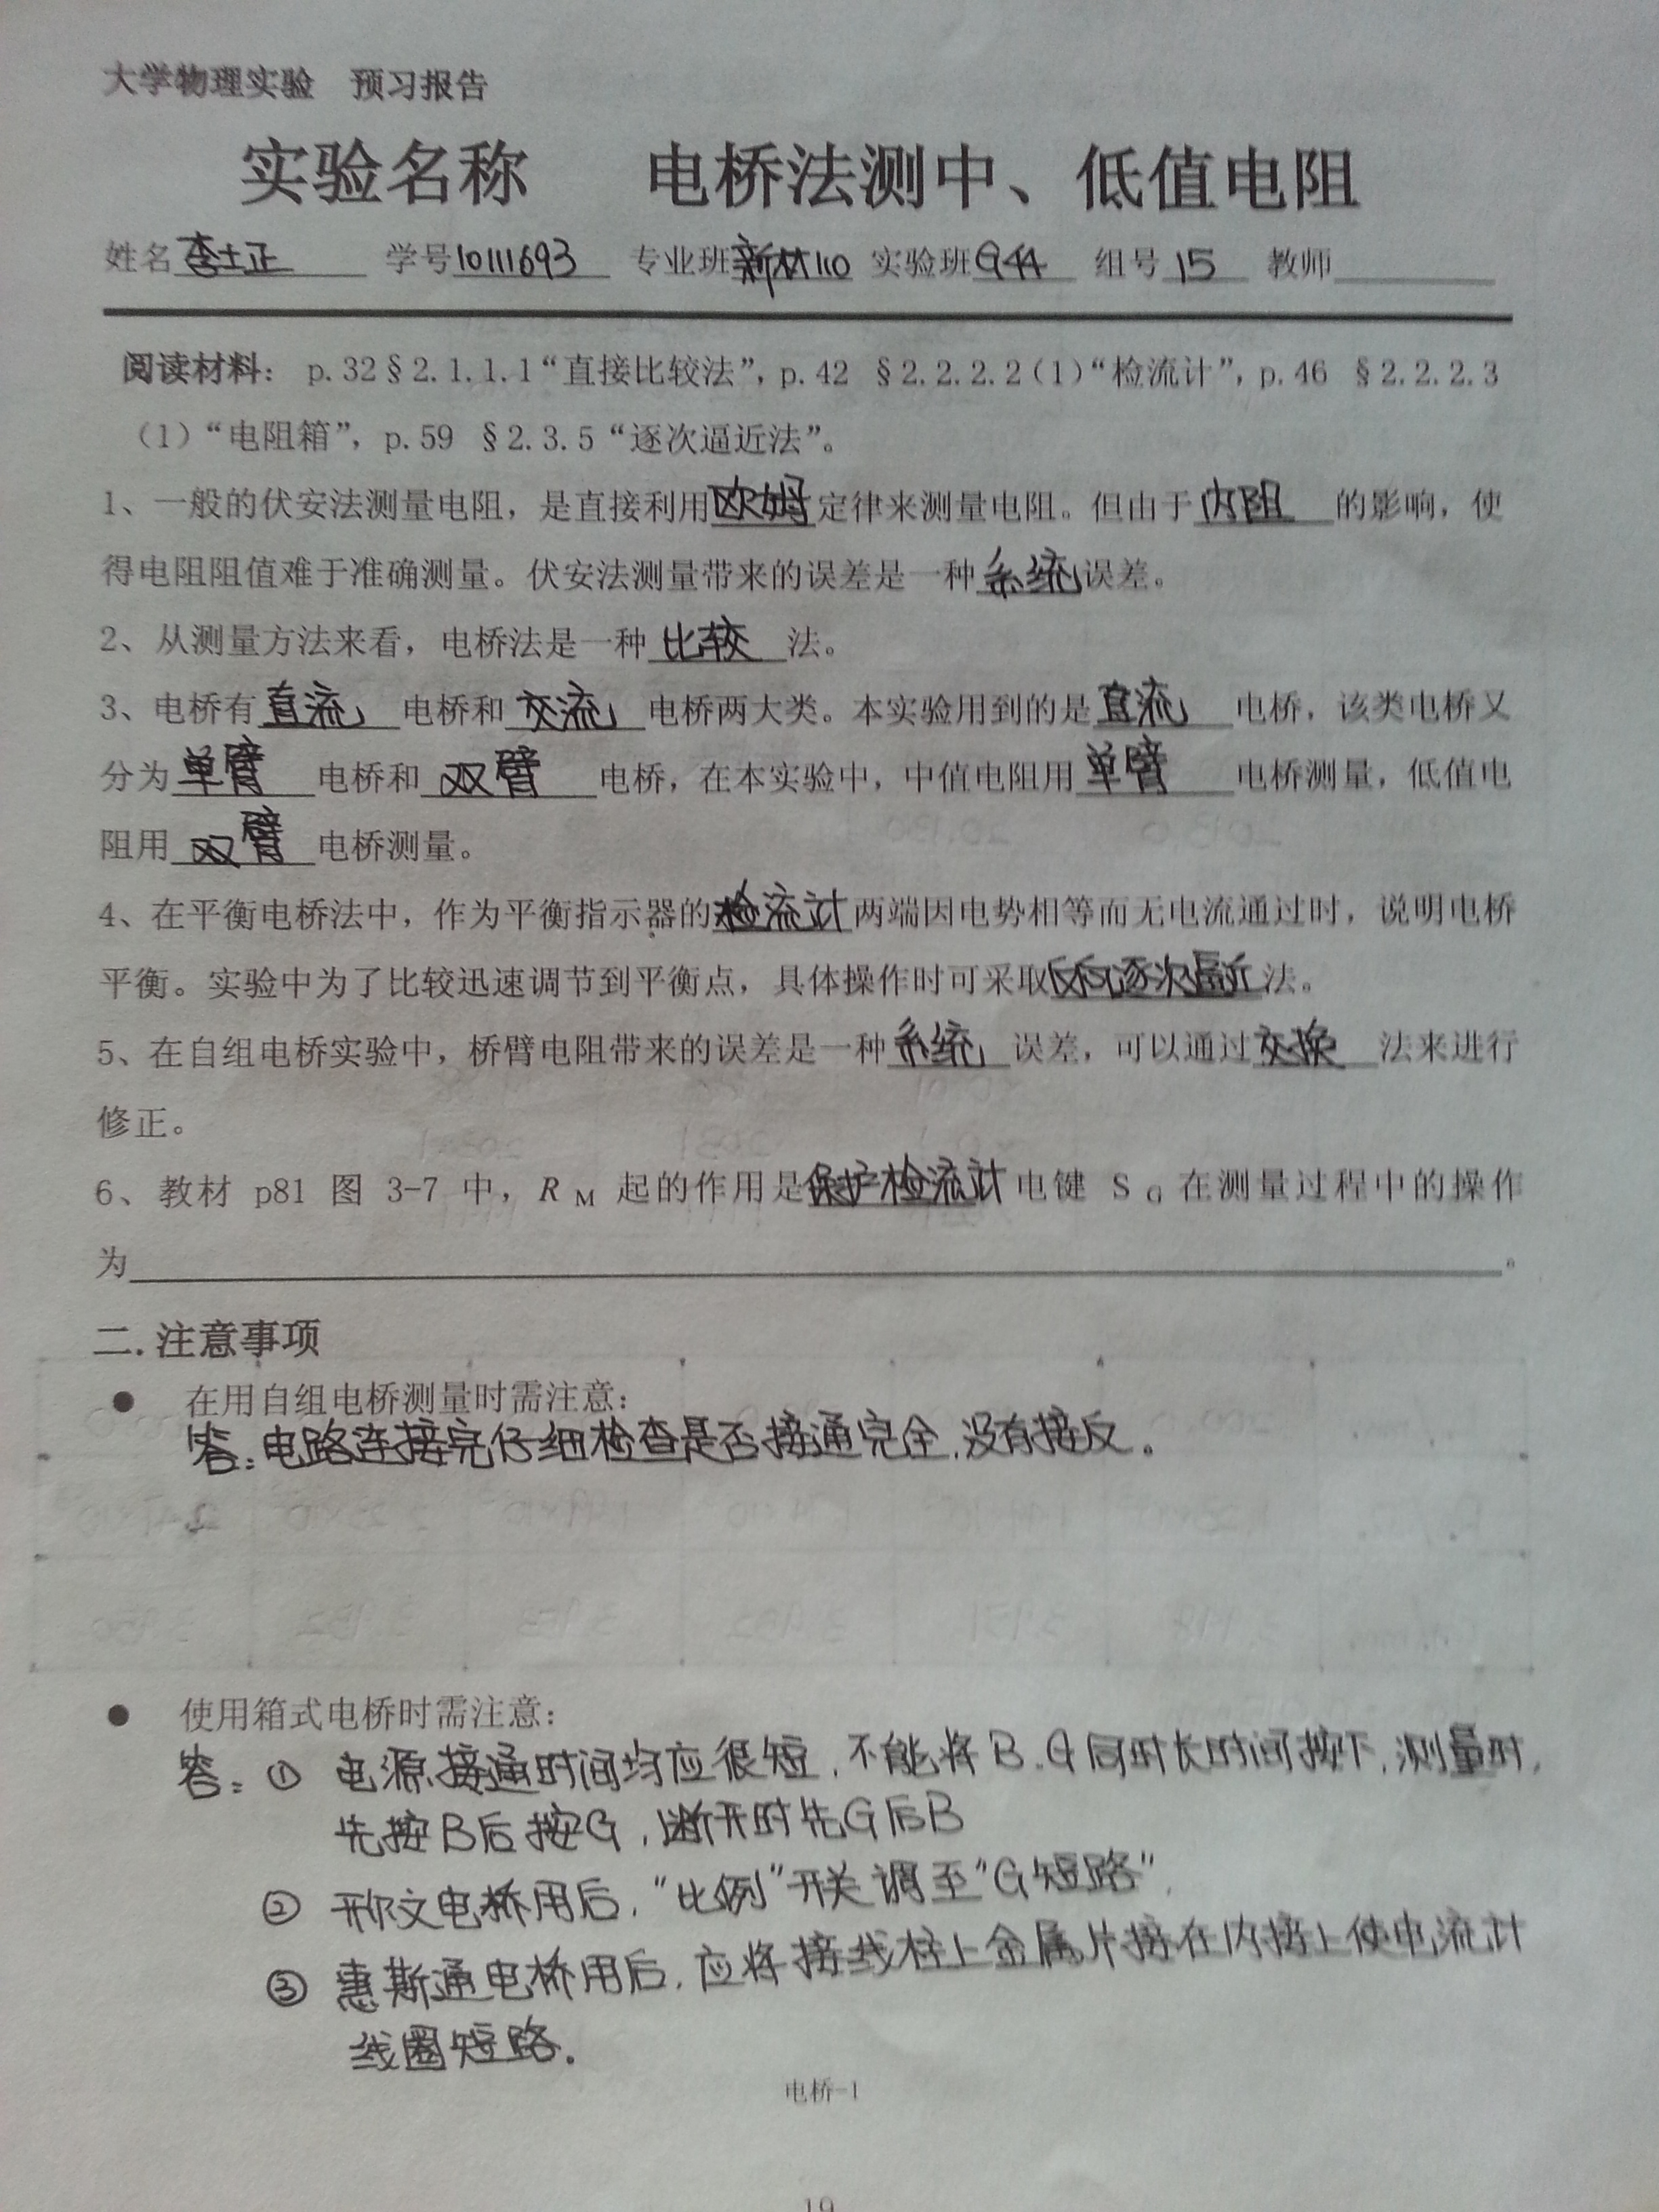 大学物理实验 预习报告
实验名称 电桥法测中、低值电阻
姓名 李士正 学号 10111693 专业班 新材110 实验班 G44 组号 15 教师
阅读材料: p.32§2.1.1.1“直接比较法”, p.42 §2.2.2.2(1)“检流计”, p.46 §2.2.2.3
(1)“电阻箱”, p.59 §2.3.5“逐次逼近法”。
1、一般的伏安法测量电阻，是直接利用欧姆定律来测量电阻。但由于内阻的影响，使
得电阻阻值难于准确测量。伏安法测量带来的误差是一种系统误差。
2、从测量方法来看，电桥法是一种比较法。
3、电桥有直流电桥和交流电桥两大类。本实验用到的是直流电桥，该类电桥又
分为单臂电桥和双臂电桥，在本实验中，中值电阻用单臂电桥测量，低值电
阻用双臂电桥测量。
4、在平衡电桥法中，作为平衡指示器的检流计两端因电势相等而无电流通过时，说明电桥
平衡。实验中为了比较迅速调节到平衡点，具体操作时可采取逐次逼近法。
5、在自组电桥实验中，桥臂电阻带来的误差是一种系统误差，可以通过交换法来进行
修正。
6、教材 p81 图 3-7 中，R M 起的作用是保护检流计电键 S G 在测量过程中的操作
为 。
二.注意事项
● 在用自组电桥测量时需注意:
答:电路连接完仔细检查是否接通完全,没有接反。
● 使用箱式电桥时需注意:
答:① 电源接通时间均应很短,不能将B.G同时长时间按下,测量时,
先按B后按G,断开时先G后B
② 用后,“比例”开关调至“G短路”,
③ 惠斯通电桥用后,应将接线柱上金属片接在内接上使电流计
线圈短路.
电桥-1
19